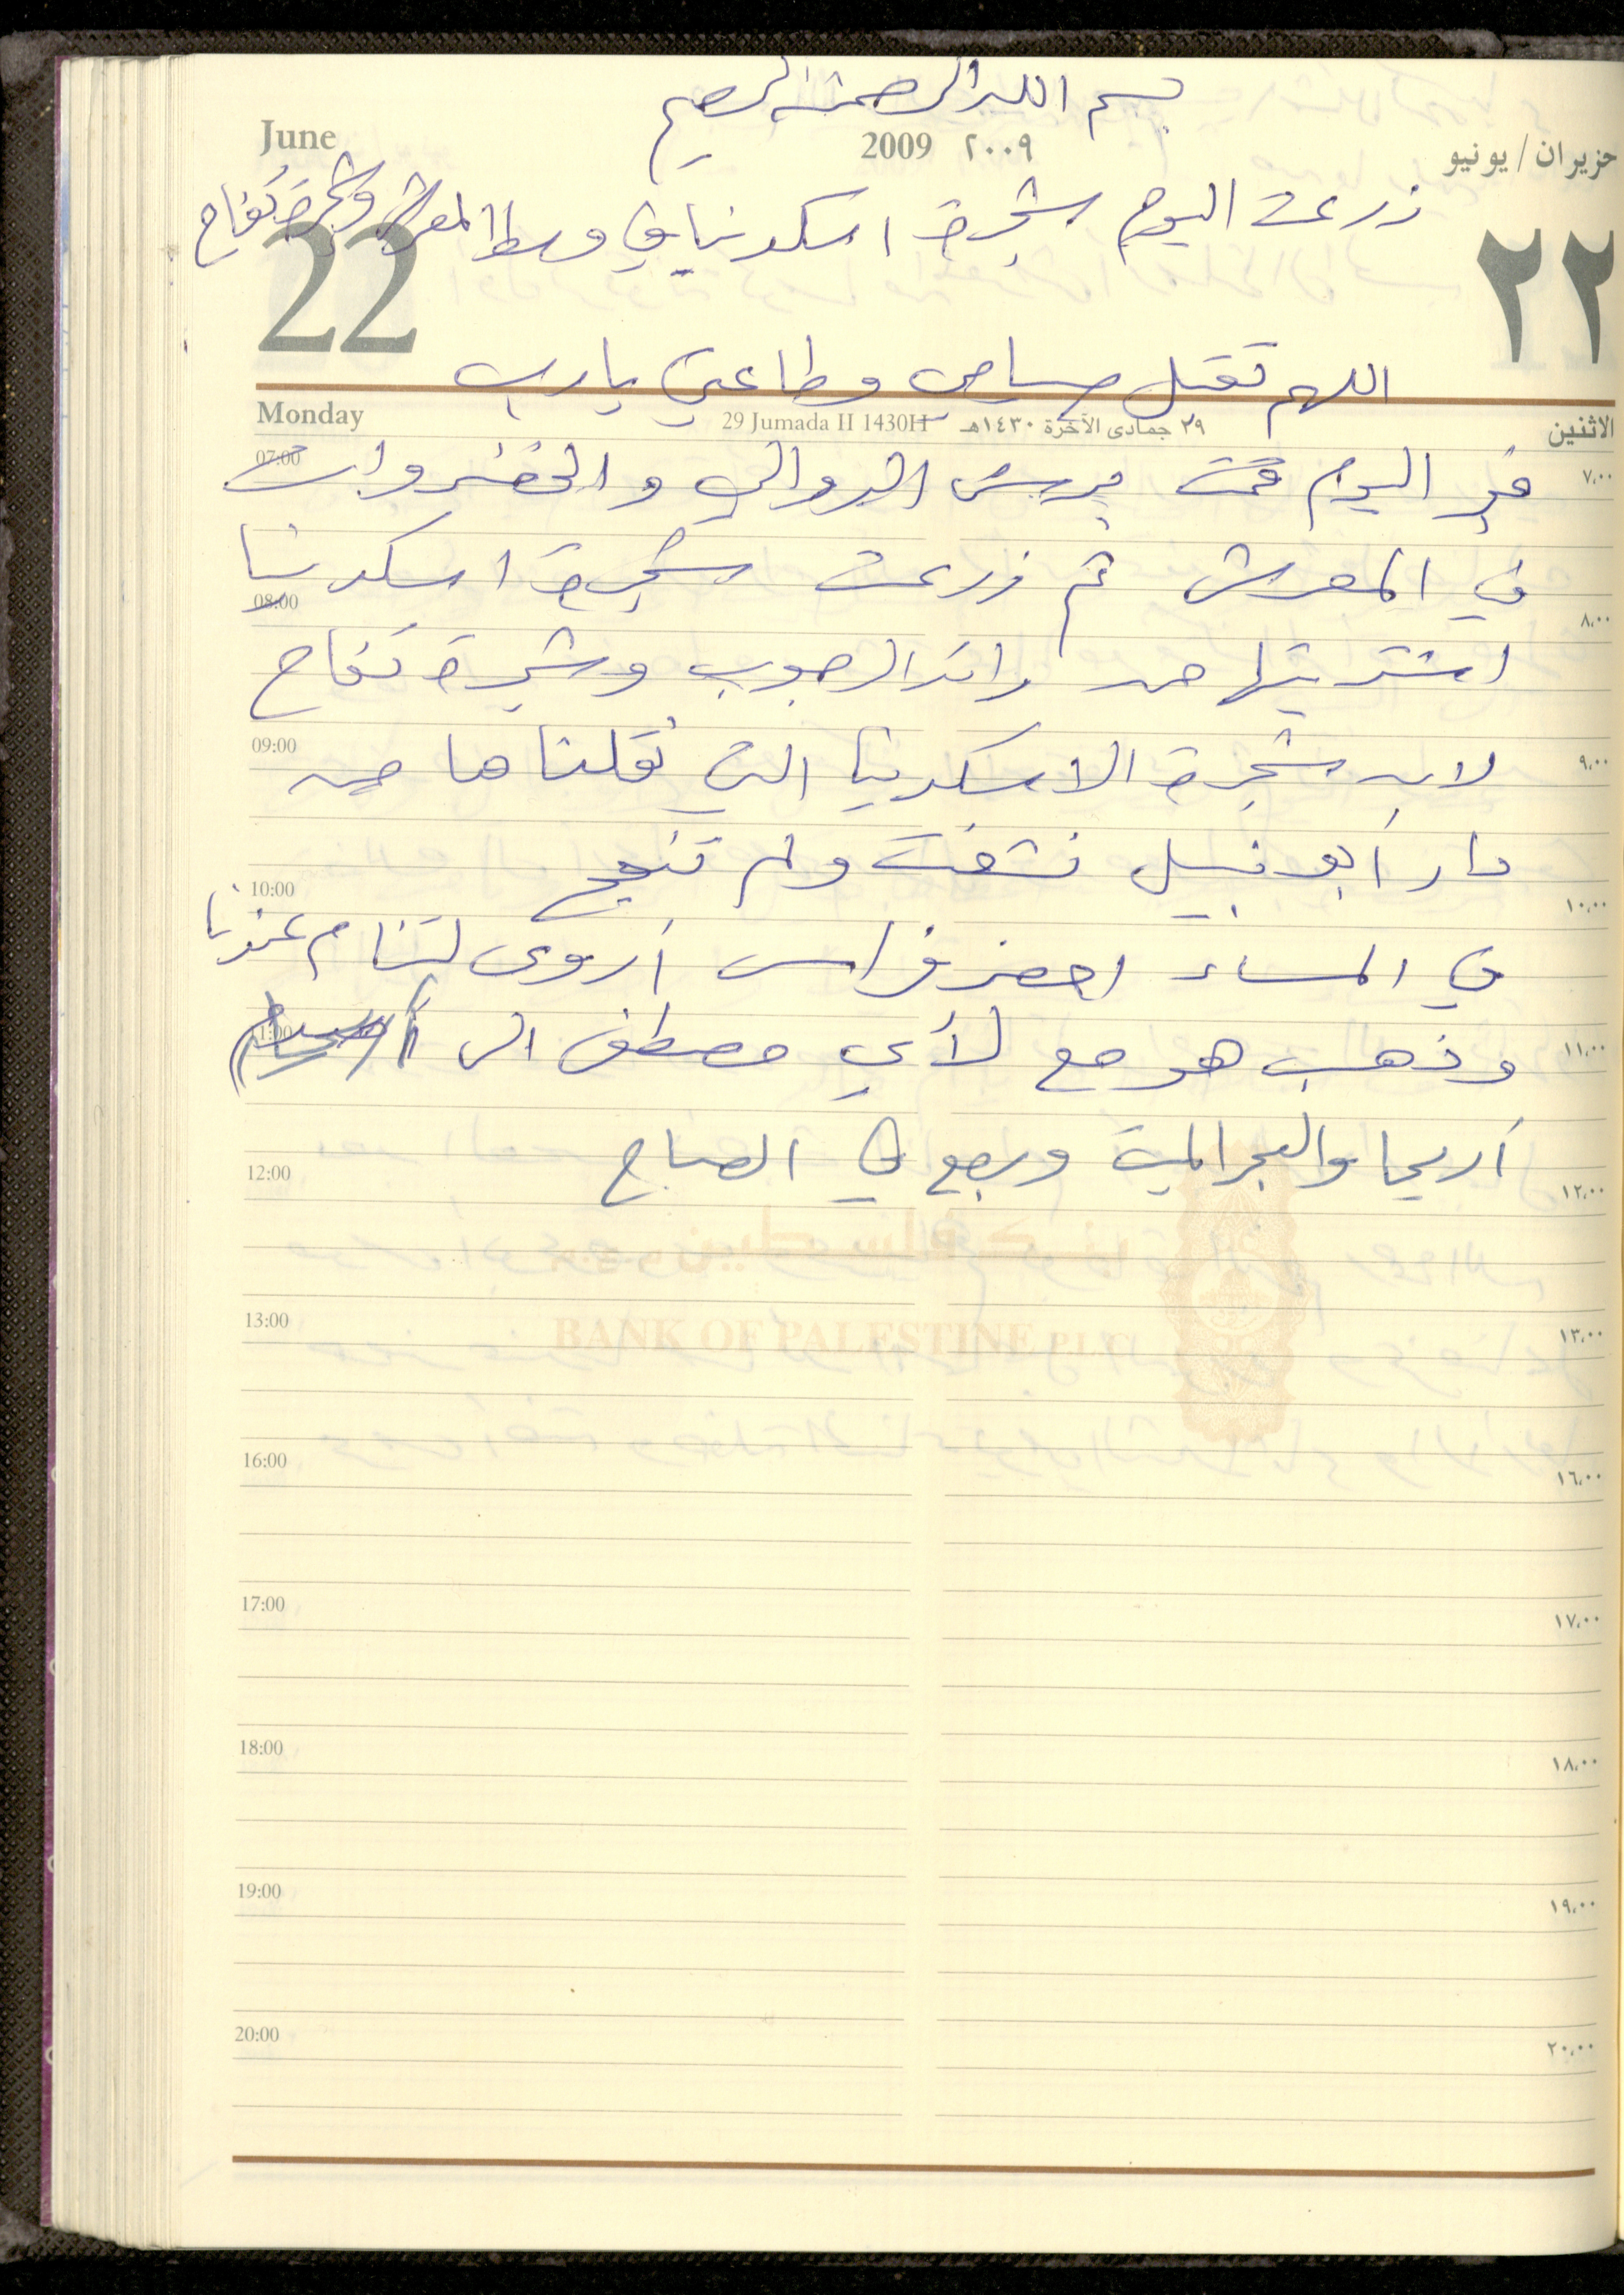 بسم الله الرحمن الرحيم
June 2009 ٢٠٠٩ حزيران / يونيو
زرعت اليوم شجرة اسكدنيا في وسط المعرش وشجرة تفاح
22 ٢٢
اللهم تقبل صيامي وطاعتي يا رب
Monday 29 Jumada II 1430H ٢٩ جمادى الآخرة ١٤٣٠هـ الاثنين
07:00 ٧،٠٠
في اليوم قمت برش الدوالي والخضروات
في المعرش ثم زرعت شجرة اسكدنيا
08:00 ٨،٠٠
اشتريتها من رائد الرجوب وشجرة تفاح
09:00 ٩،٠٠
لان شجرة الاسكدنيا التي نقلناها من
دار أبو نبيل نشفت ولم تنجح
10:00 ١٠،٠٠
في المساء احضر فراس أروى لتنام عندنا
11:00 ١١،٠٠
وذهب هو مع لأي مصطفى الى
أريحا والبحر الميت ورجع في الصباح
12:00 ١٢،٠٠
بنك فلسطين
BANK OF PALESTINE PLC
13:00 ١٣،٠٠
16:00 ١٦،٠٠
17:00 ١٧،٠٠
18:00 ١٨،٠٠
19:00 ١٩،٠٠
20:00 ٢٠،٠٠